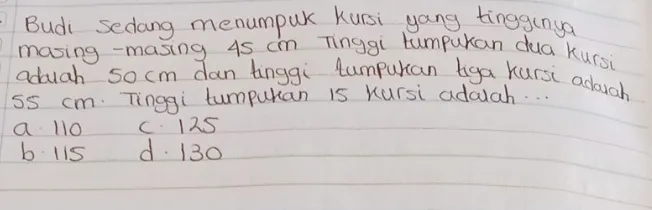 Budi sedang menumpuk kursi yang tingginya
masing-masing 45 cm Tinggi tumpukan dua kursi
adalah 50 cm dan tinggi tumpukan tiga kursi adalah
55 cm. Tinggi tumpukan 15 kursi adalah ...
a. 110 c. 125
b. 115 d. 130